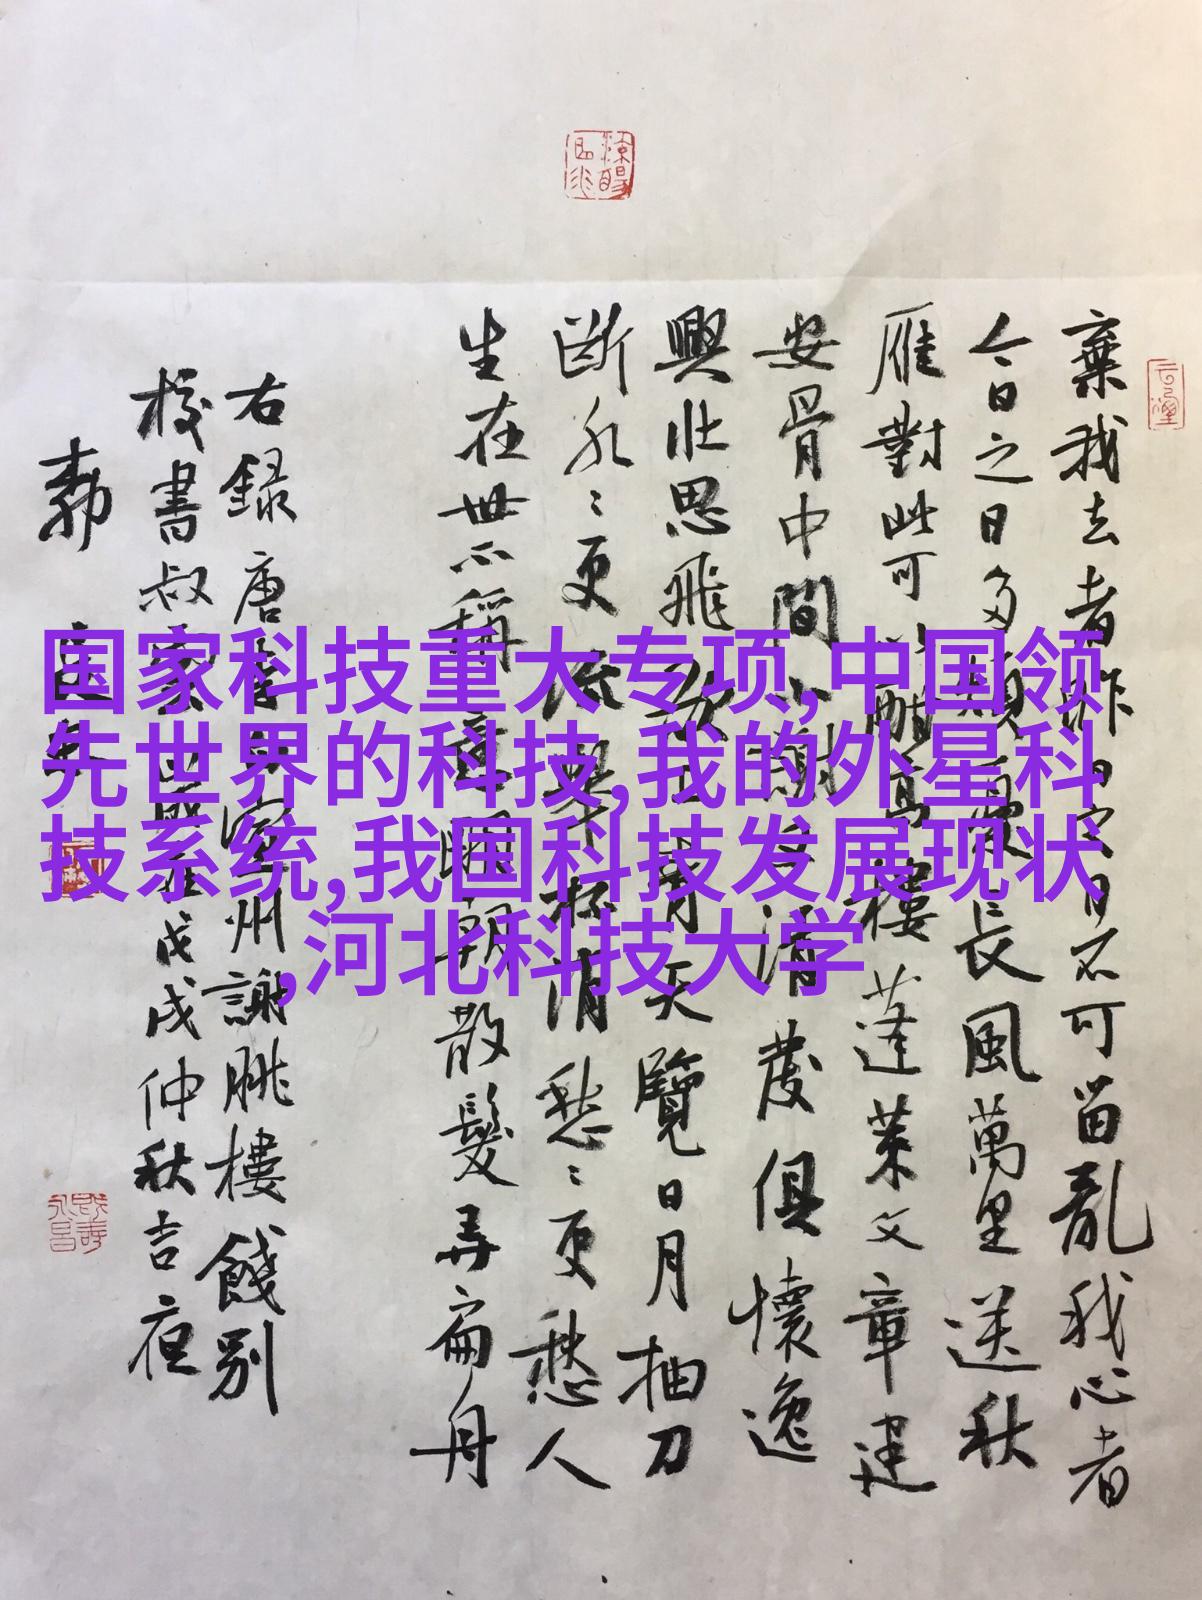 棄我去者昨日之日不可留亂我心者
今日之日多煩憂長風萬里送秋
雁對此可以酣高樓蓬萊文章建
安骨中間小謝又清發俱懷逸
興壯思飛欲上青天覽日月抽刀
斷水〻更流舉杯消愁〻更愁人
生在世不稱意明朝散髮弄扁舟
右録唐李白宣州謝朓樓餞別
校書叔雲戊戌仲秋吉夜
国家科技重大专项,中国领
先世界的科技,我的外星科
技系统,我国科技发展现状
,河北科技大学